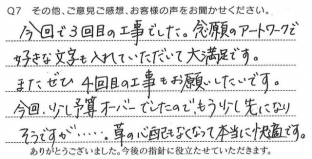 Q7 その他、ご意見ご感想、お客様の声をお聞かせください。
今回で3回目の工事でした。念願のアートワークで
好きな文字も入れていただいて大満足です。
またぜひ4回目の工事もお願いしたいです。
今回、少し予算オーバーでしたので、もう少し先になり
そうですが……。草の心配もなくなって本当に快適です。
ありがとうございました。今後の指針に役立たせていただきます。